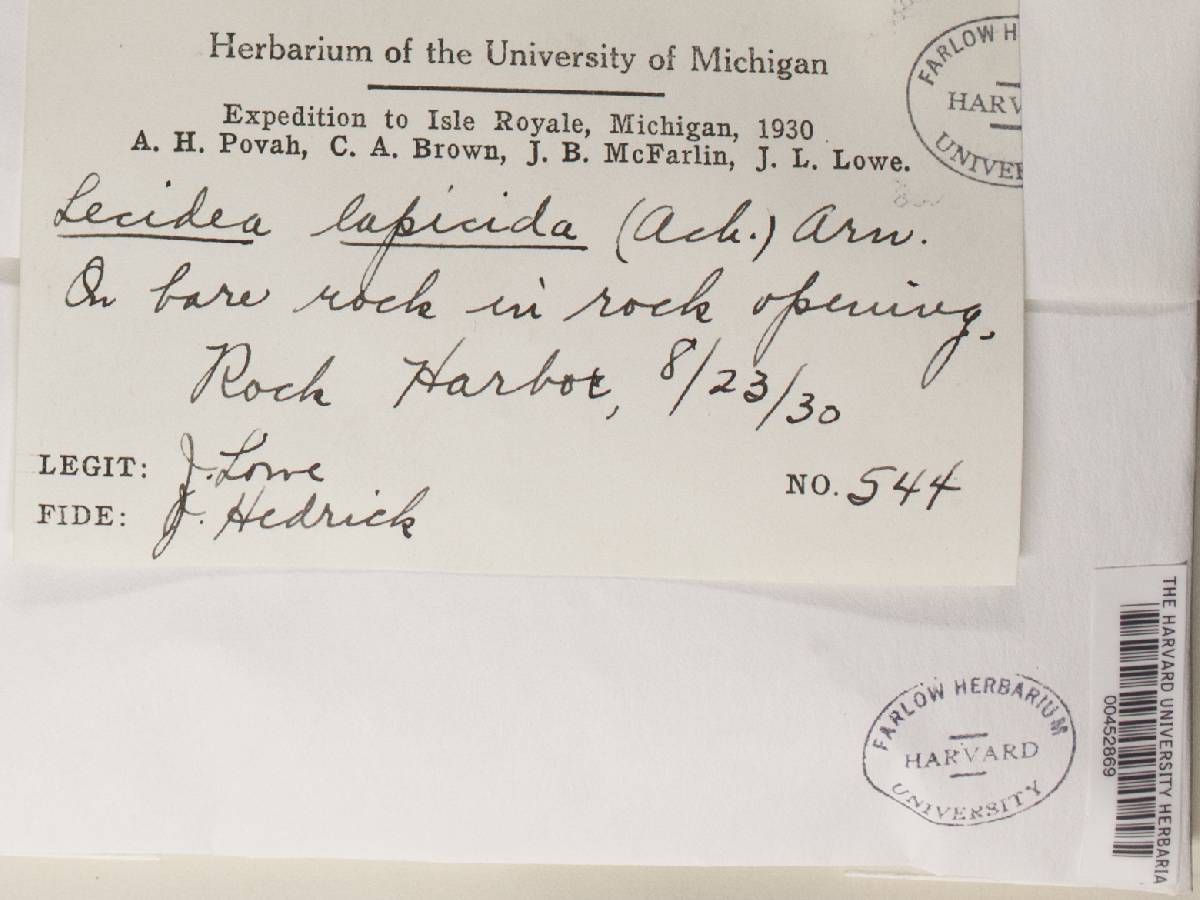 Herbarium of the University of Michigan
Expedition to Isle Royale, Michigan, 1930
A. H. Povah, C. A. Brown, J. B. McFarlin, J. L. Lowe.
Lecidea lapicida (Ach.) Arn.
On bare rock in rock opening,
Rock Harbor, 8/23/30
LEGIT: J. Lowe
FIDE: J. Hedrick
NO. 544
FARLOW H
HARV
UNIVER
FARLOW HERBARIUM
HARVARD
UNIVERSITY
THE HARVARD UNIVERSITY HERBARIA
00452869